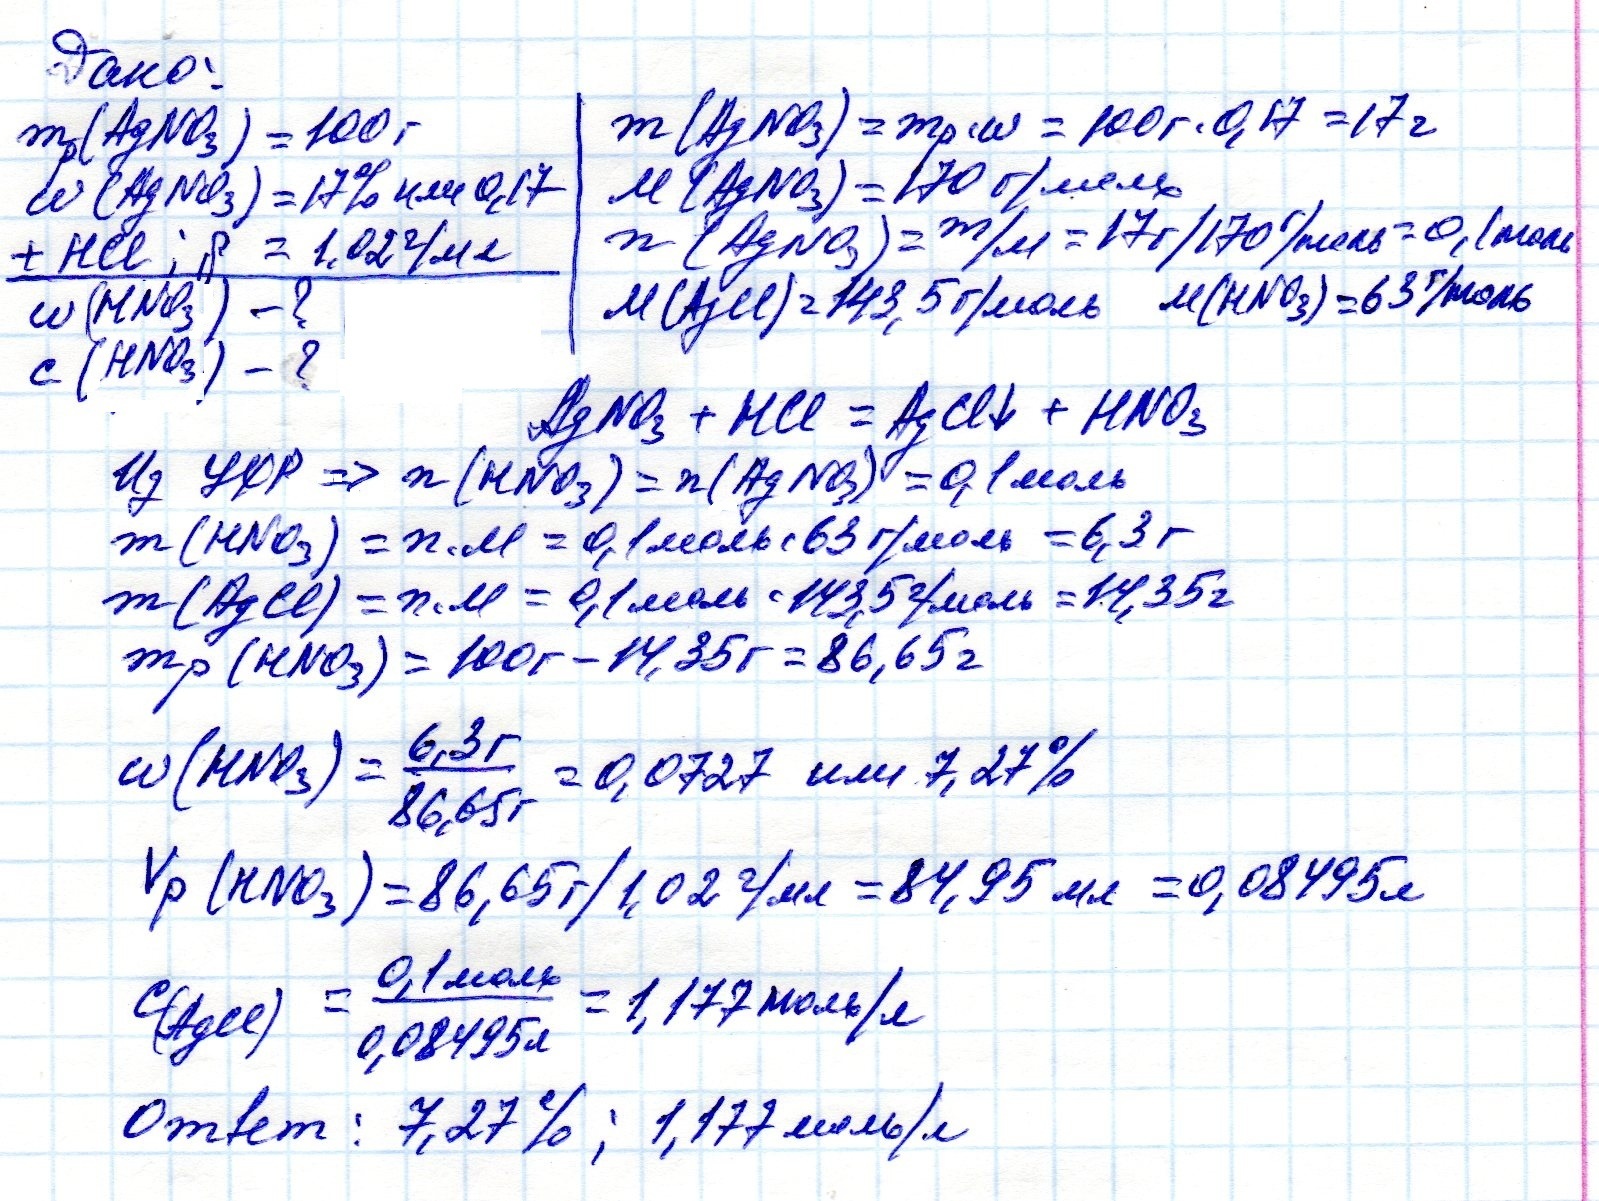 Дано:
mр(AgNO₃) = 100г
w(AgNO₃) = 17% или 0,17
+ HCl; ρ = 1.02г/мл
w(HNO₃) - ?
c(HNO₃) - ?
m(AgNO₃) = mр·w = 100г·0,17 = 17г
M(AgNO₃) = 170 г/моль
n(AgNO₃) = m/M = 17г/170г/моль = 0,1моль
M(AgCl) = 143,5г/моль M(HNO₃) = 63г/моль
AgNO₃ + HCl = AgCl↓ + HNO₃
Из УХР => n(HNO₃) = n(AgNO₃) = 0,1моль
m(HNO₃) = n·M = 0,1моль·63г/моль = 6,3г
m(AgCl) = n·M = 0,1моль·143,5г/моль = 14,35г
mр(HNO₃) = 100г - 14,35г = 86,65г
w(HNO₃) = 6,3г/86,65г = 0,0727 или 7,27%
Vр(HNO₃) = 86,65г/1,02г/мл = 84,95мл = 0,08495л
c(AgCl) = 0,1моль/0,08495л = 1,177моль/л
Ответ: 7,27%; 1,177моль/л